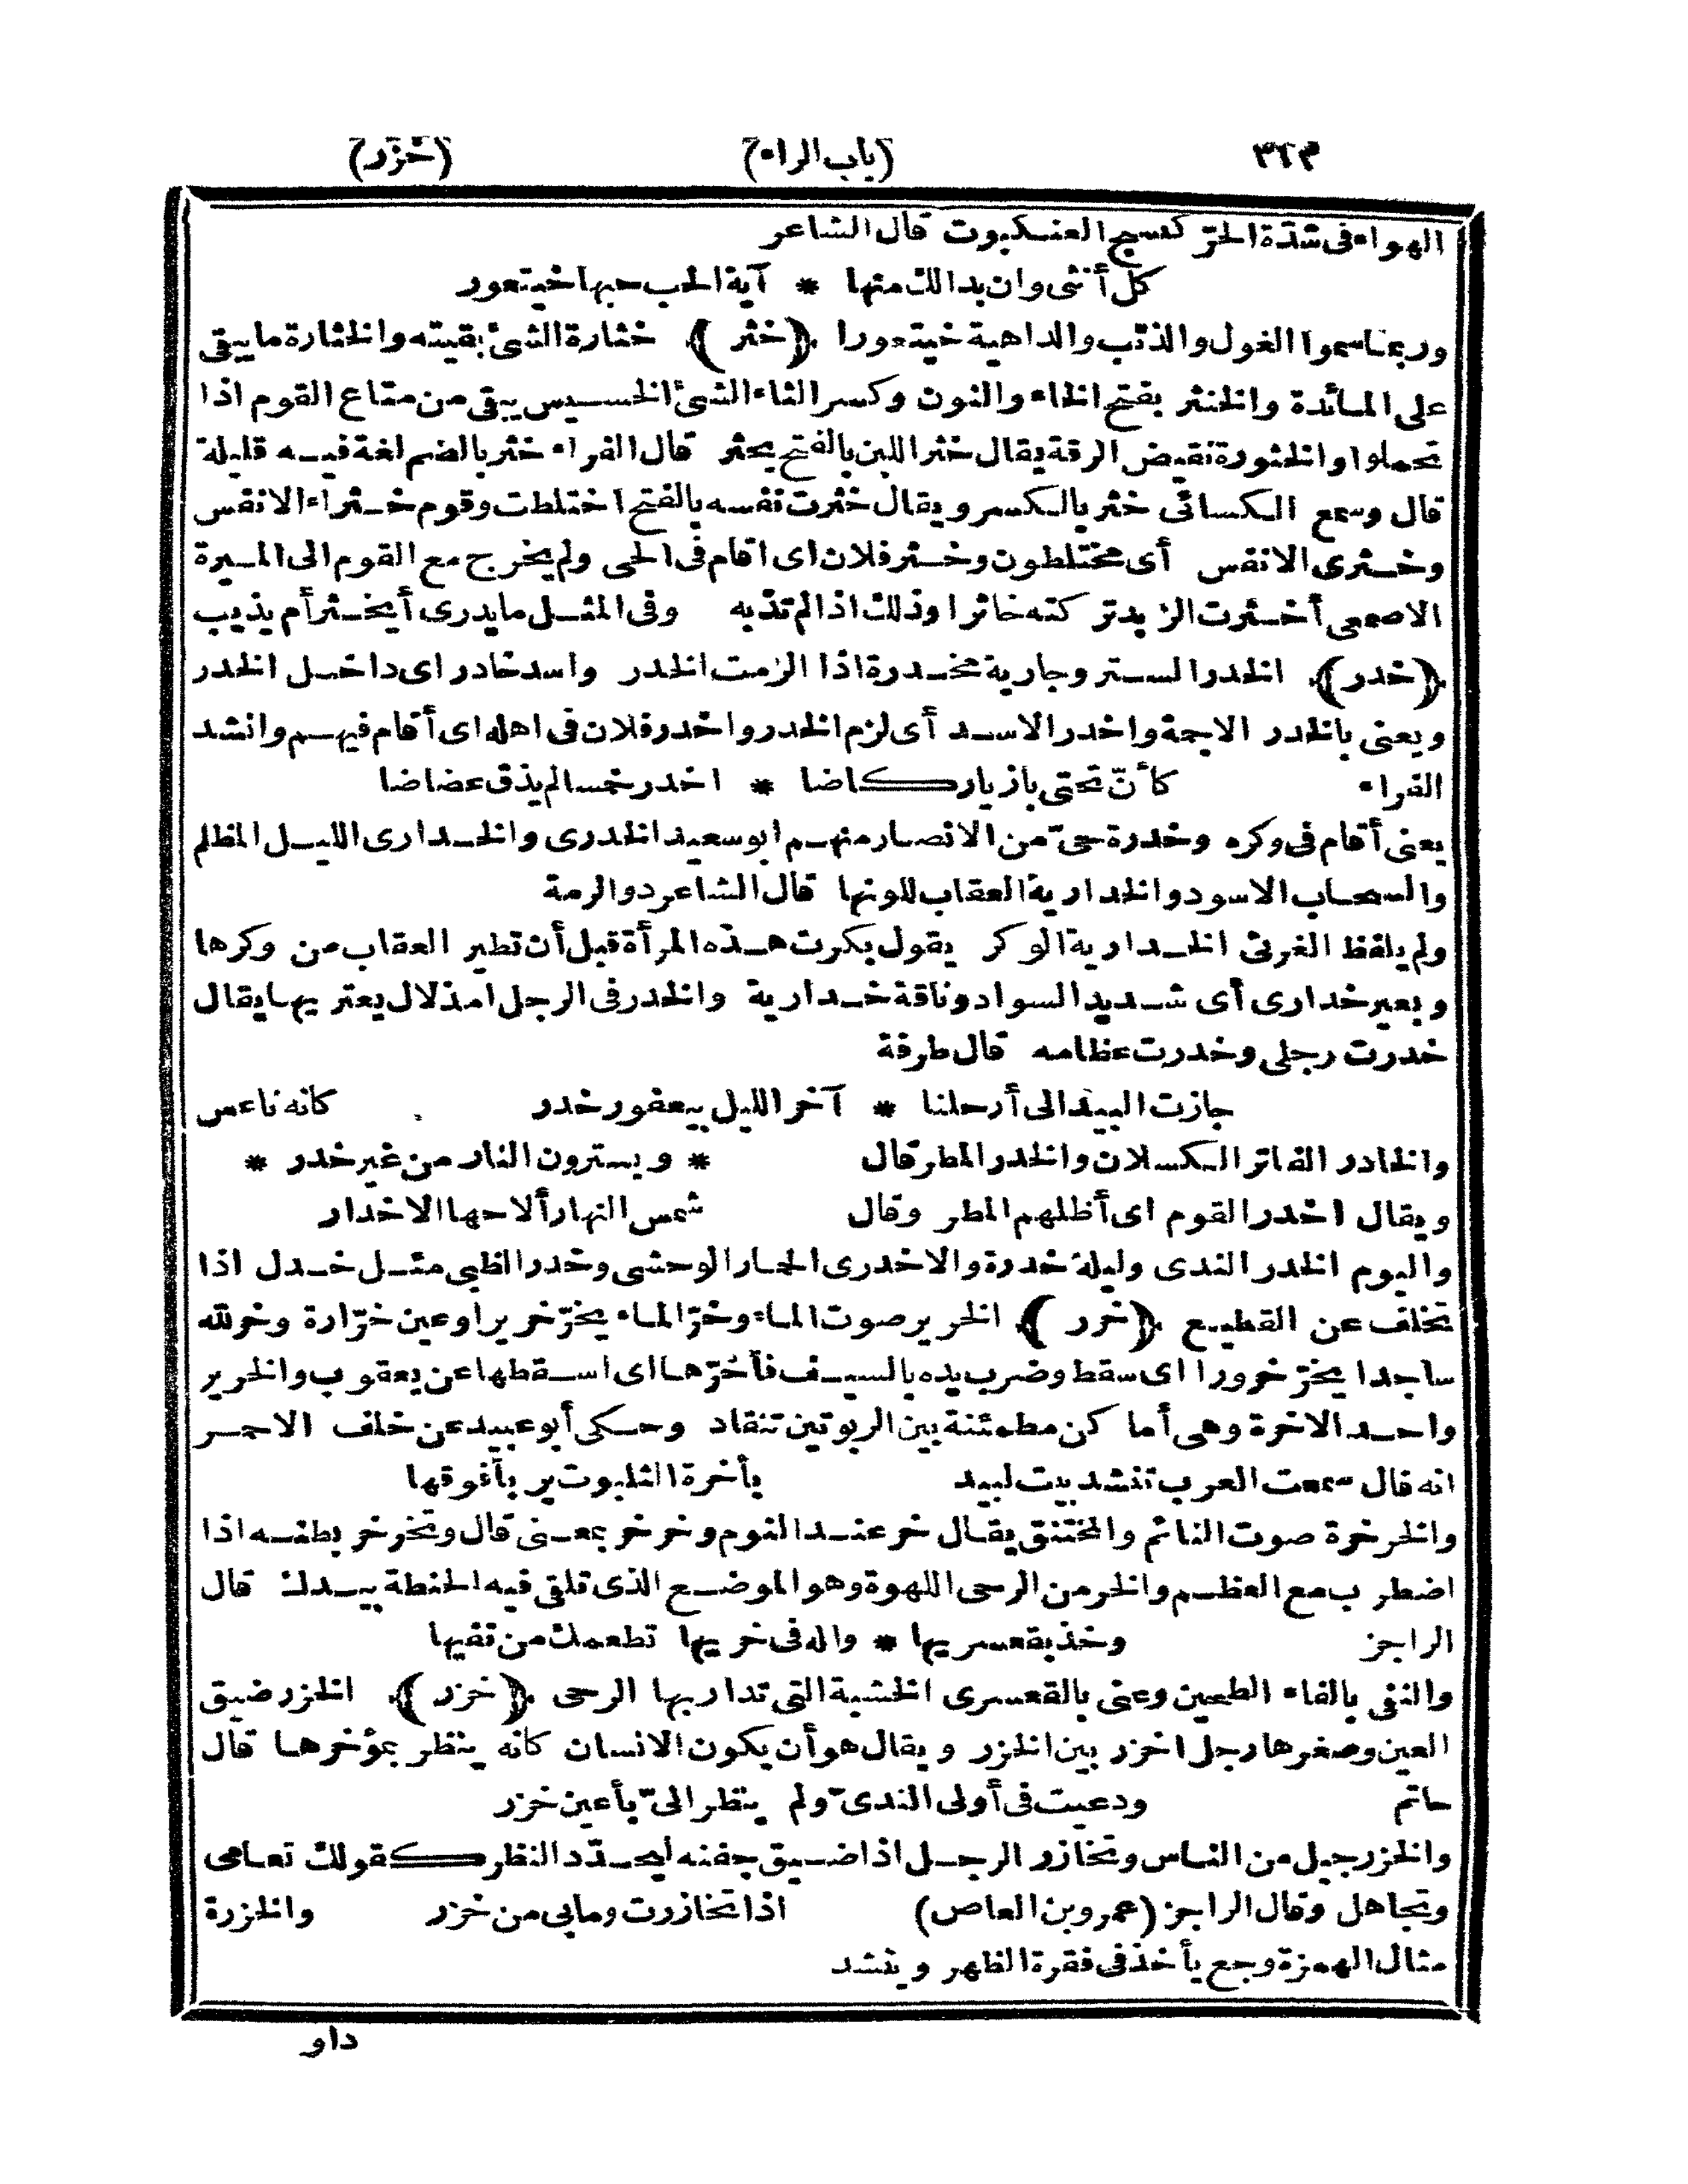 ٣٢٤ (باب الراء) (خزر)
الهواء فى شدّة الحرّ كنسيج العنكبوت قال الشاعر
كل أنثى وان بدالك منها * آية الحب حبها خيتعور
وربما سموا الغول والذئب والداهية خيتعورا ﴿خثر﴾ خثارة الشئ بقيته والخثارة ما يبقى
على المائدة والخنثر بفتح الخاء والنون وكسر الثاء الشئ الخسيس يبقى من متاع القوم اذا
تحملوا والخثورة نقيض الرقة يقال خثر اللبن بالفتح يخثر قال الفراء خثر بالضم لغة فيه قليلة
قال وسمع الكسائى خثر بالكسر ويقال خثرت نفسه بالفتح اختلطت وقوم خثراء الانفس
وخثرى الانفس أى مختلطون وخثر فلان اى اقام فى الحى ولم يخرج مع القوم الى الميرة
الاصمعى أخثرت الزبد تركته خاثرا وذلك اذا لم تذبه وفى المثل ما يدرى أيخثر أم يذيب
﴿خدر﴾ الخدر الستر وجارية مخدرة اذا الزمت الخدر واسد خادر اى داخل الخدر
ويعنى بالخدر الاجمة واخدر الاسد أى لزم الخدر واخدر فلان فى اهله اى أقام فيهم وانشد
الفراء كأنّ تحتى بازيا ركاضا * اخدر خمسا لم يذق عضاضا
يعنى أقام فى وكره وخدرة حىّ من الانصار منهم ابو سعيد الخدرى والخدارى الليل المظلم
والسحاب الاسود والخدارية العقاب للونها قال الشاعر ذو الرمة
ولم يلفظ الغرثى الخدارية الوكر يقول بكرت هذه المرأة قبل أن تطير العقاب من وكرها
وبعير خدارى أى شديد السواد وناقة خدارية والخدر فى الرجل امذلال يعتريها يقال
خدرت رجلى وخدرت عظامه قال طرفة
جازت البيد الى أرحلنا * آخر الليل بيعفور خدر كانه ناعس
والخادر الفاتر الكسلان والخدر المطر قال * ويسترون النار من غير خدر *
ويقال اخدر القوم اى أظلهم المطر وقال شمس النهار ألاحها الاخدار
واليوم الخدر الندى وليلة خدرة والاخدرى الحمار الوحشى وخدر الظبى مثل خدل اذا
تخلف عن القطيع ﴿خرر﴾ الخرير صوت الماء وخرّ الماء يخرّ خريرا وعين خرّارة وخر لله
ساجدا يخرّ خرورا اى سقط وضرب يده بالسيف فأخرّها اى اسقطها عن يعقوب والخرير
واحد الاخرة وهى أما كن مطمئنة بين الربوتين تنقاد وحكى أبو عبيد عن خلف الاحمر
انه قال سمعت العرب تنشد بيت لبيد بأخرة الثلبوت يربأ فوقها
والخرخرة صوت النائم والمختنق يقال خر عند النوم وخرخر بمعنى قال وتخرخر بطنه اذا
اضطرب مع العظم والخر من الرحى اللهوة وهو الموضع الذى تلقى فيه الحنطة بيدك قال
الراجز وخذ بقعسريها * واله فى خريها تطعمك من نفيها
والنفى بالفاء الطحين وعنى بالقعسرى الخشبة التى تدار بها الرحى ﴿خزر﴾ الخزر ضيق
العين وصغرها رجل اخزر بين الخزر ويقال هو أن يكون الانسان كانه ينظر بمؤخرها قال
حاتم ودعيت فى أولى الندىّ ولم ينظر الىّ بأعين خزر
والخزر جيل من الناس وتخازر الرجل اذا ضيق جفنه ليحدّد النظر كقولك تعامى
وتجاهل وقال الراجز (عمرو بن العاص) اذا تخازرت ومابى من خزر والخزرة
مثال الهمزة وجع يأخذ فى فقرة الظهر وينشد
داو